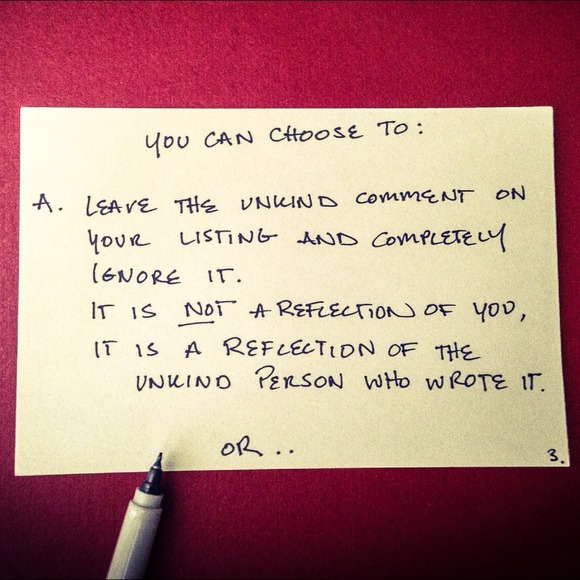 YOU CAN CHOOSE TO:
A. LEAVE THE UNKIND COMMENT ON
YOUR LISTING AND COMPLETELY
IGNORE IT.
IT IS NOT A REFLECTION OF YOU,
IT IS A REFLECTION OF THE
UNKIND PERSON WHO WROTE IT.
OR..
3.